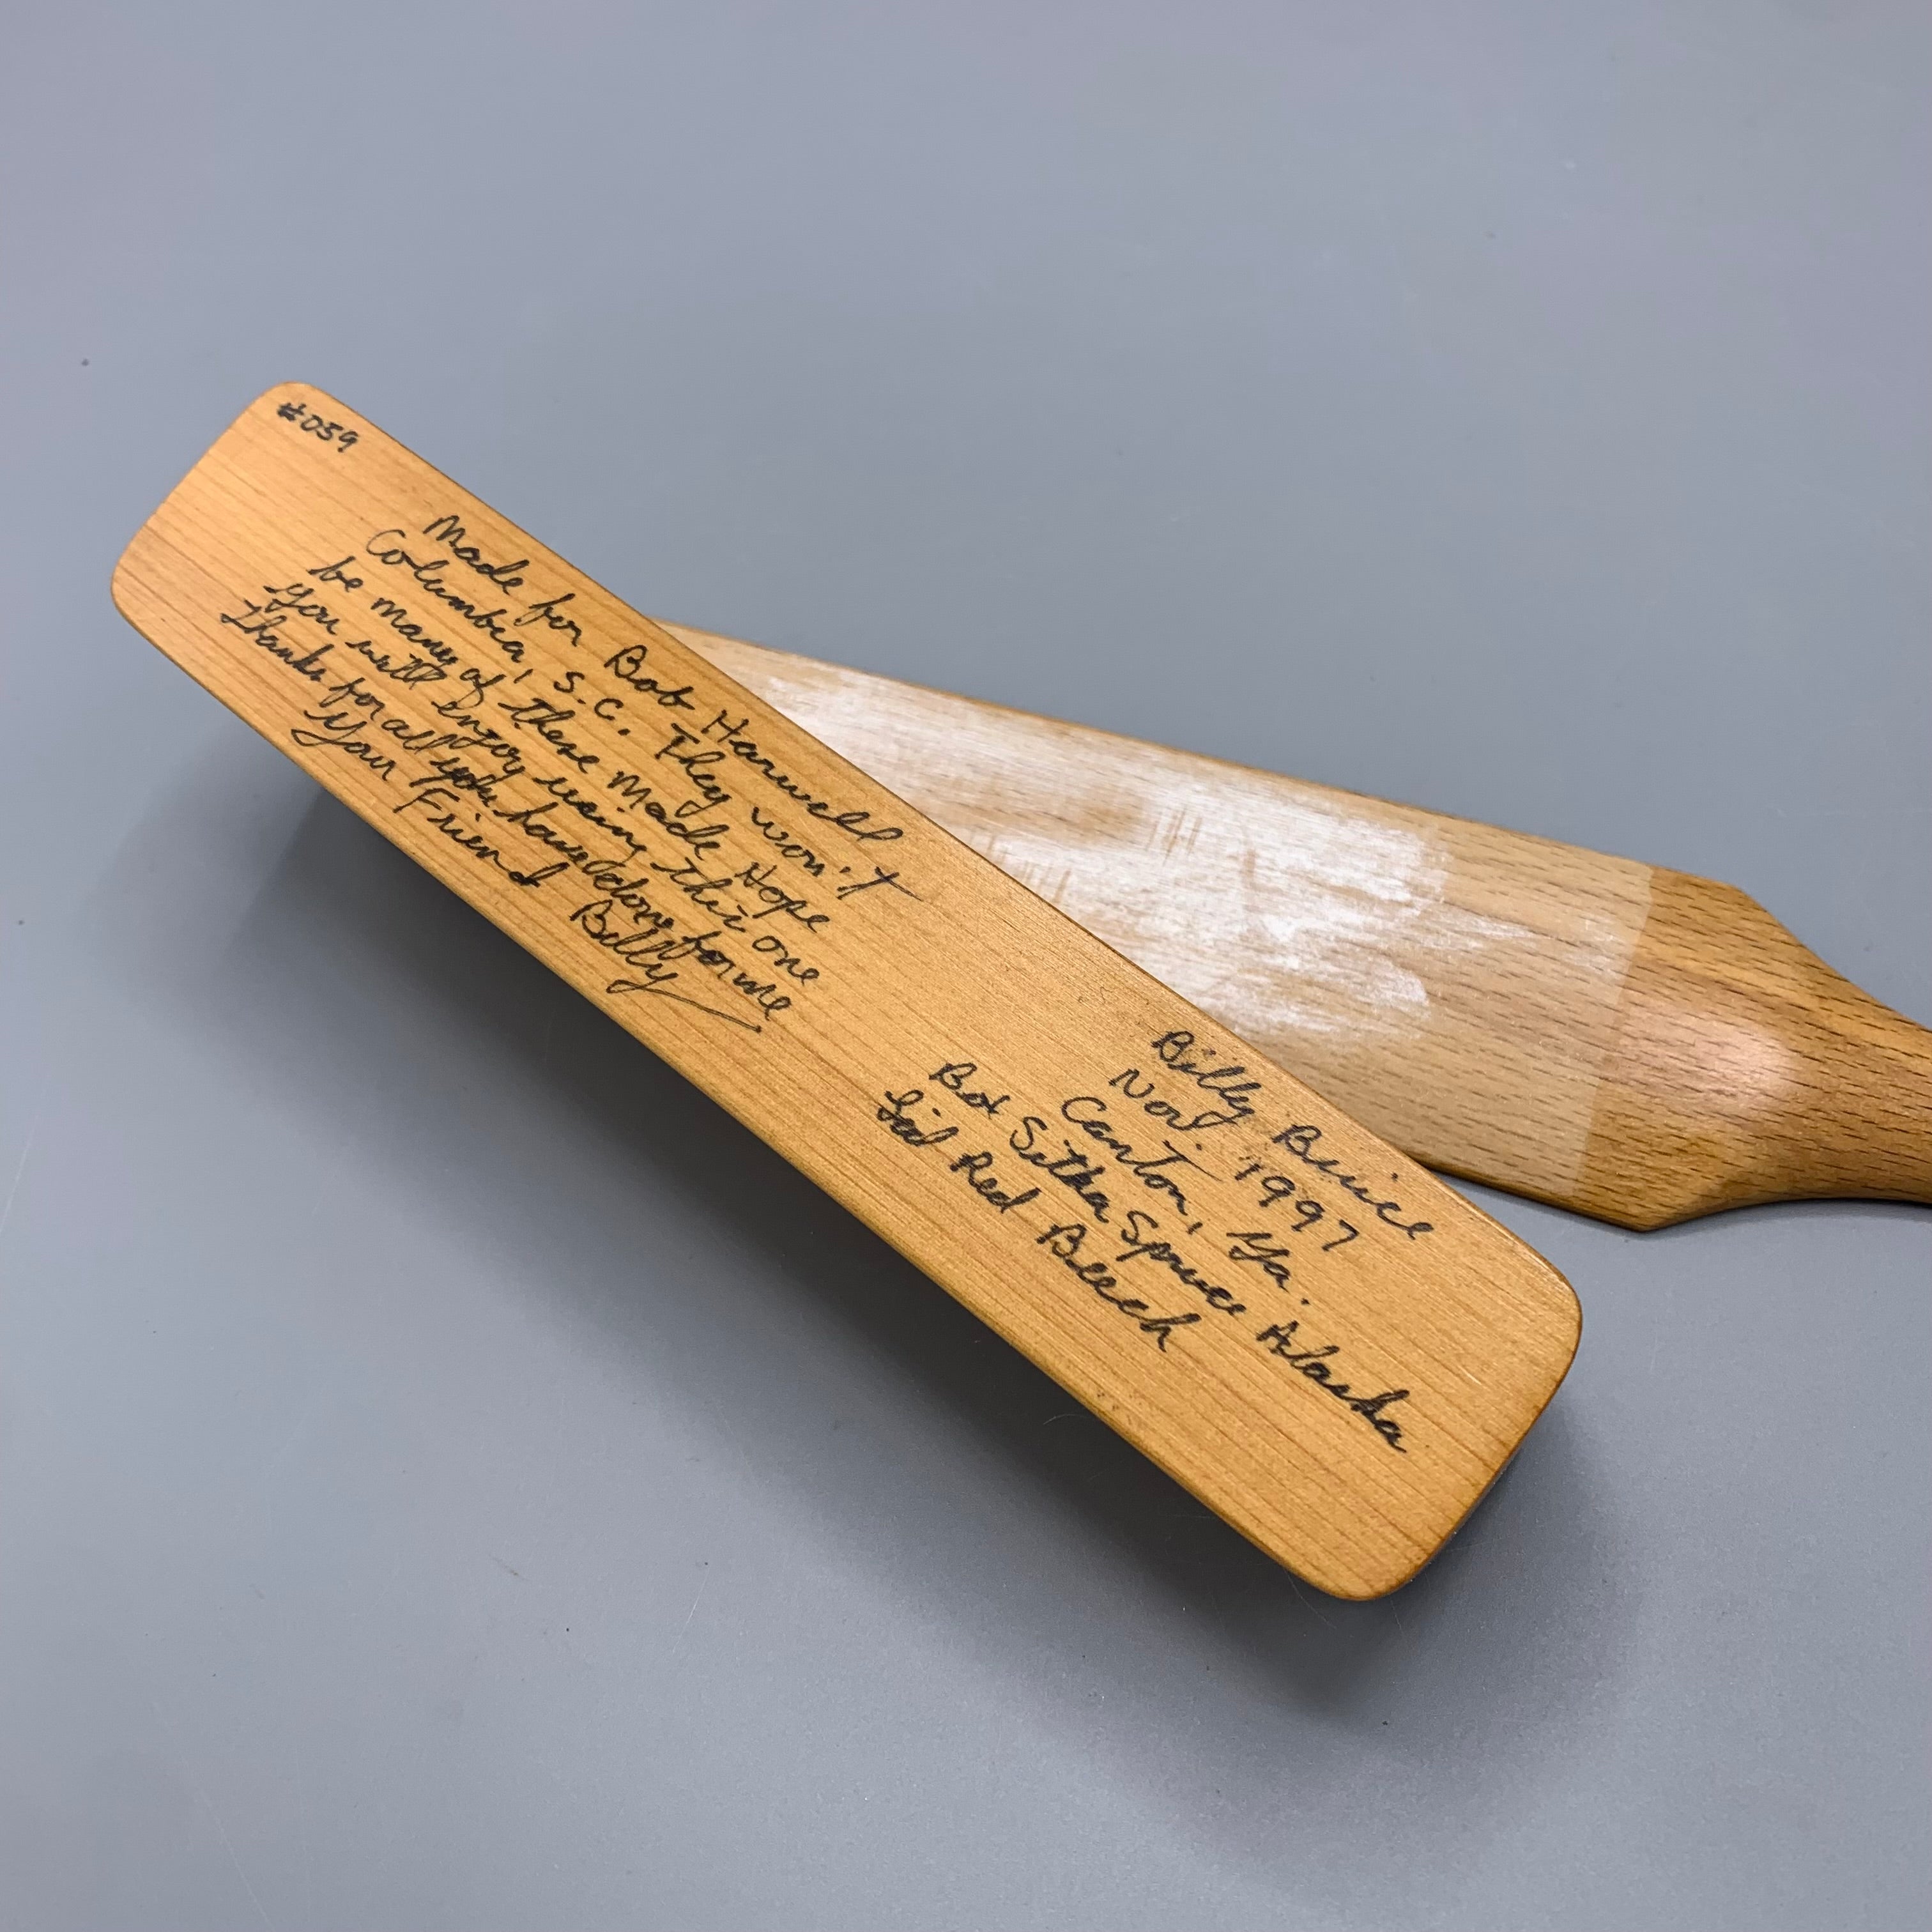 #059
Made for Bob Harwell
Columbia, S.C. They won't
be many of these Made Hope
you will Enjoy using this one
Thanks for all you have done for me
Your Friend
Billy
Billy Buice
Nov. 1997
Canton, Ga.
Bot Sitka Spruce Alaska
Lid Red Beech